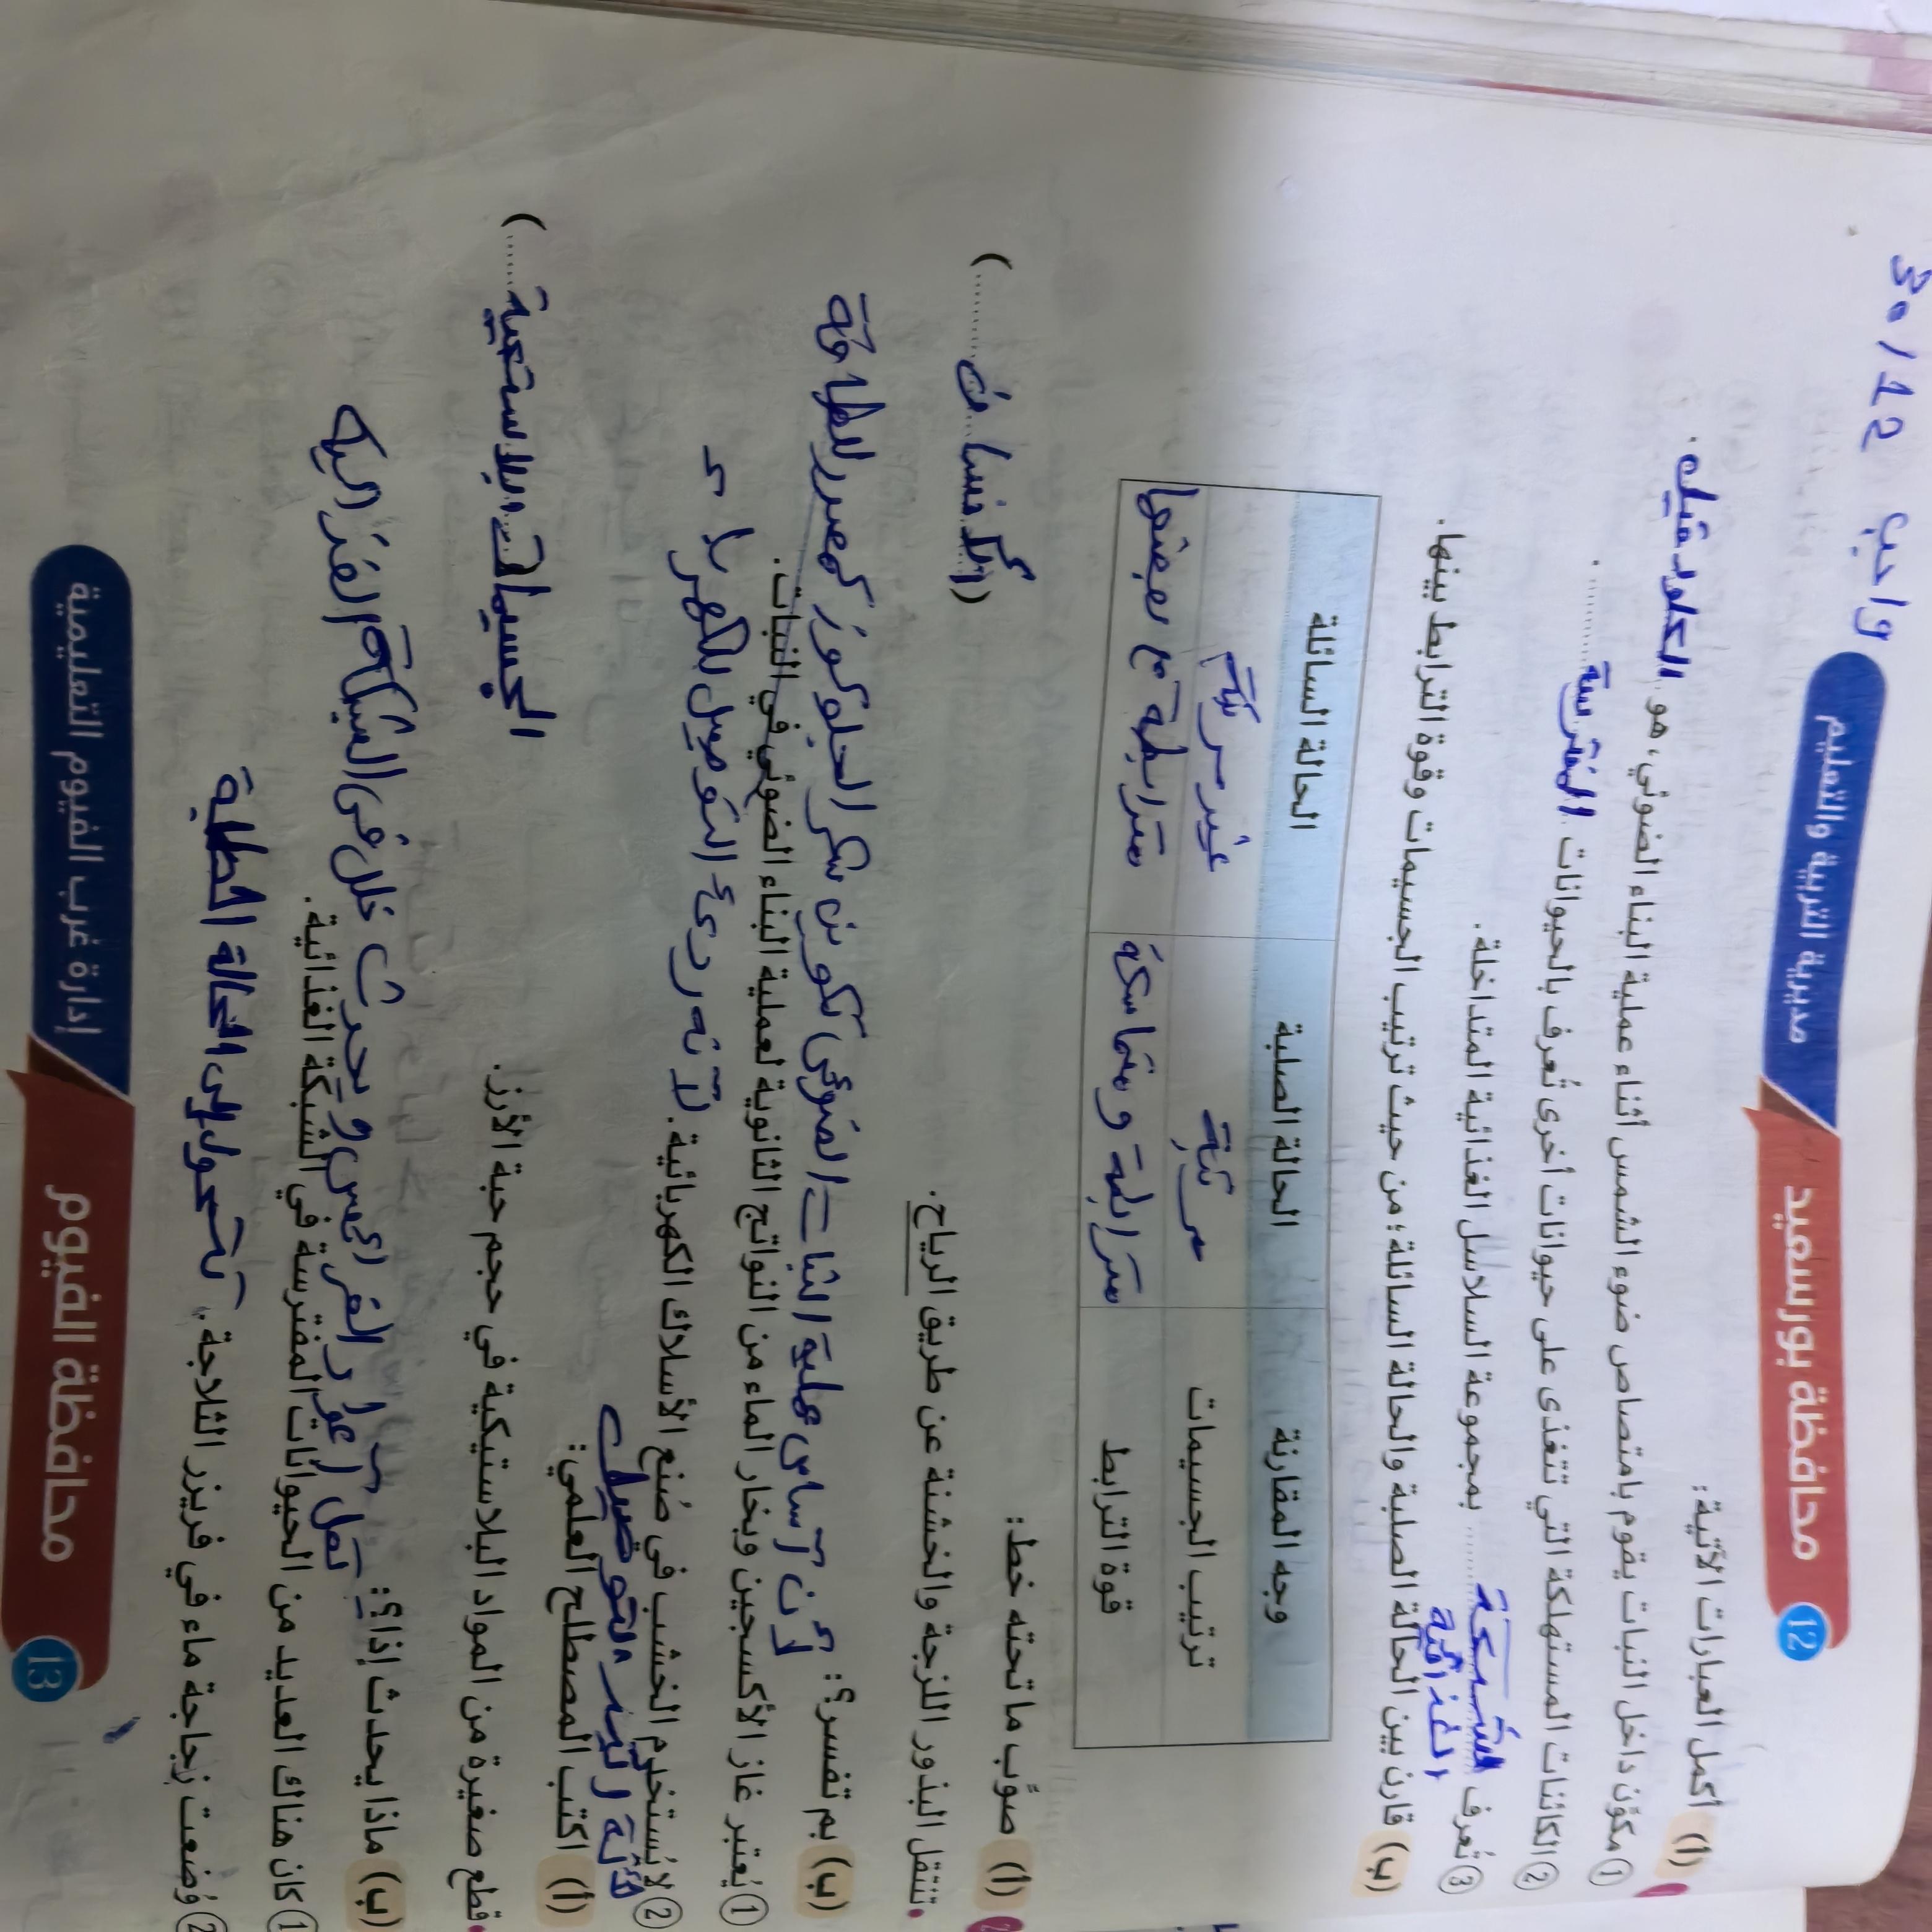 30/12 واجب
محافظة بورسعيد مديرية التربية والتعليم 12
(أ) أكمل العبارات الآتية:
① مكوّن داخل النبات يقوم بامتصاص ضوء الشمس أثناء عملية البناء الضوئي، هو الكلوروفيل.
② الكائنات المستهلكة التي تتغذى على حيوانات أخرى تُعرف بالحيوانات المفترسة .........
③ تُعرف الشبكة الغذائية ........ بمجموعة السلاسل الغذائية المتداخلة.
(ب) قارن بين الحالة الصلبة والحالة السائلة؛ من حيث ترتيب الجسيمات وقوة الترابط بينها.
وجه المقارنة الحالة الصلبة الحالة السائلة
ترتيب الجسيمات مرتبة غير مرتبة
قوة الترابط مترابطة ومتماسكة مترابطة مع بعضها
2 (أ) صوِّب ما تحته خط:
• تنتقل البذور اللزجة والخشنة عن طريق الرياح. (الإنسان ........)
(ب) بم تفسر؟: لأن أساس عملية البناء الضوئي تكوين سكر الجلوكوز كمصدر للطاقة
① يُعتبر غاز الأكسجين وبخار الماء من النواتج الثانوية لعملية البناء الضوئي في النبات.
② لا يُستخدم الخشب في صُنع الأسلاك الكهربائية. لأنه رديء التوصيل للكهرباء
(أ) اكتب المصطلح العلمي:
• قطع صغيرة من المواد البلاستيكية في حجم حبة الأرز. (الجسيمات البلاستيكية ......)
(ب) ماذا يحدث إذا؟: تقل أعداد الفرائس ويحدث خلل في الشبكة الغذائية
① كان هناك العديد من الحيوانات المفترسة في الشبكة الغذائية.
② وُضعت زجاجة ماء في فريزر الثلاجة. تتحول إلى الحالة الصلبة
محافظة الفيوم إدارة غرب الفيوم التعليمية 13